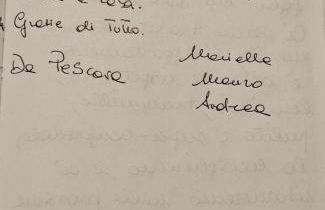 casa.
Grazie di Tutto.
Da Pescara
Mariella
Mauro
Andrea